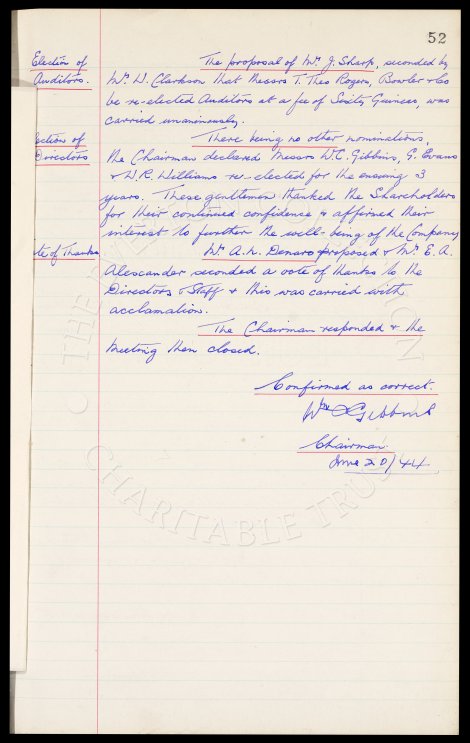 52
Election of
Auditors.
The proposal of Mr. J. Sharp, seconded by
Mr. W. Clarkson that Messrs T. Theo Rogers, Bowler & Co
be re-elected Auditors at a fee of Sixty Guineas, was
carried unanimously.
ection of
Directors
There being no other nominations,
the Chairman declared Messrs W.C. Gibbins, G. Evans
& W.R. Williams re-elected for the ensuing 3
years. These gentlemen thanked the Shareholders
for their continued confidence & affirmed their
interest to further the well-being of the Company
te of Thanks
Mr. A.N. Denaro proposed & Mr. E.A.
Alexander seconded a vote of thanks to the
Directors & Staff & this was carried with
acclamation.
The Chairman responded & the
meeting then closed.
Confirmed as correct.
Wm C Gibbins
Chairman.
June 20/44.
CHARITABLE TRUST